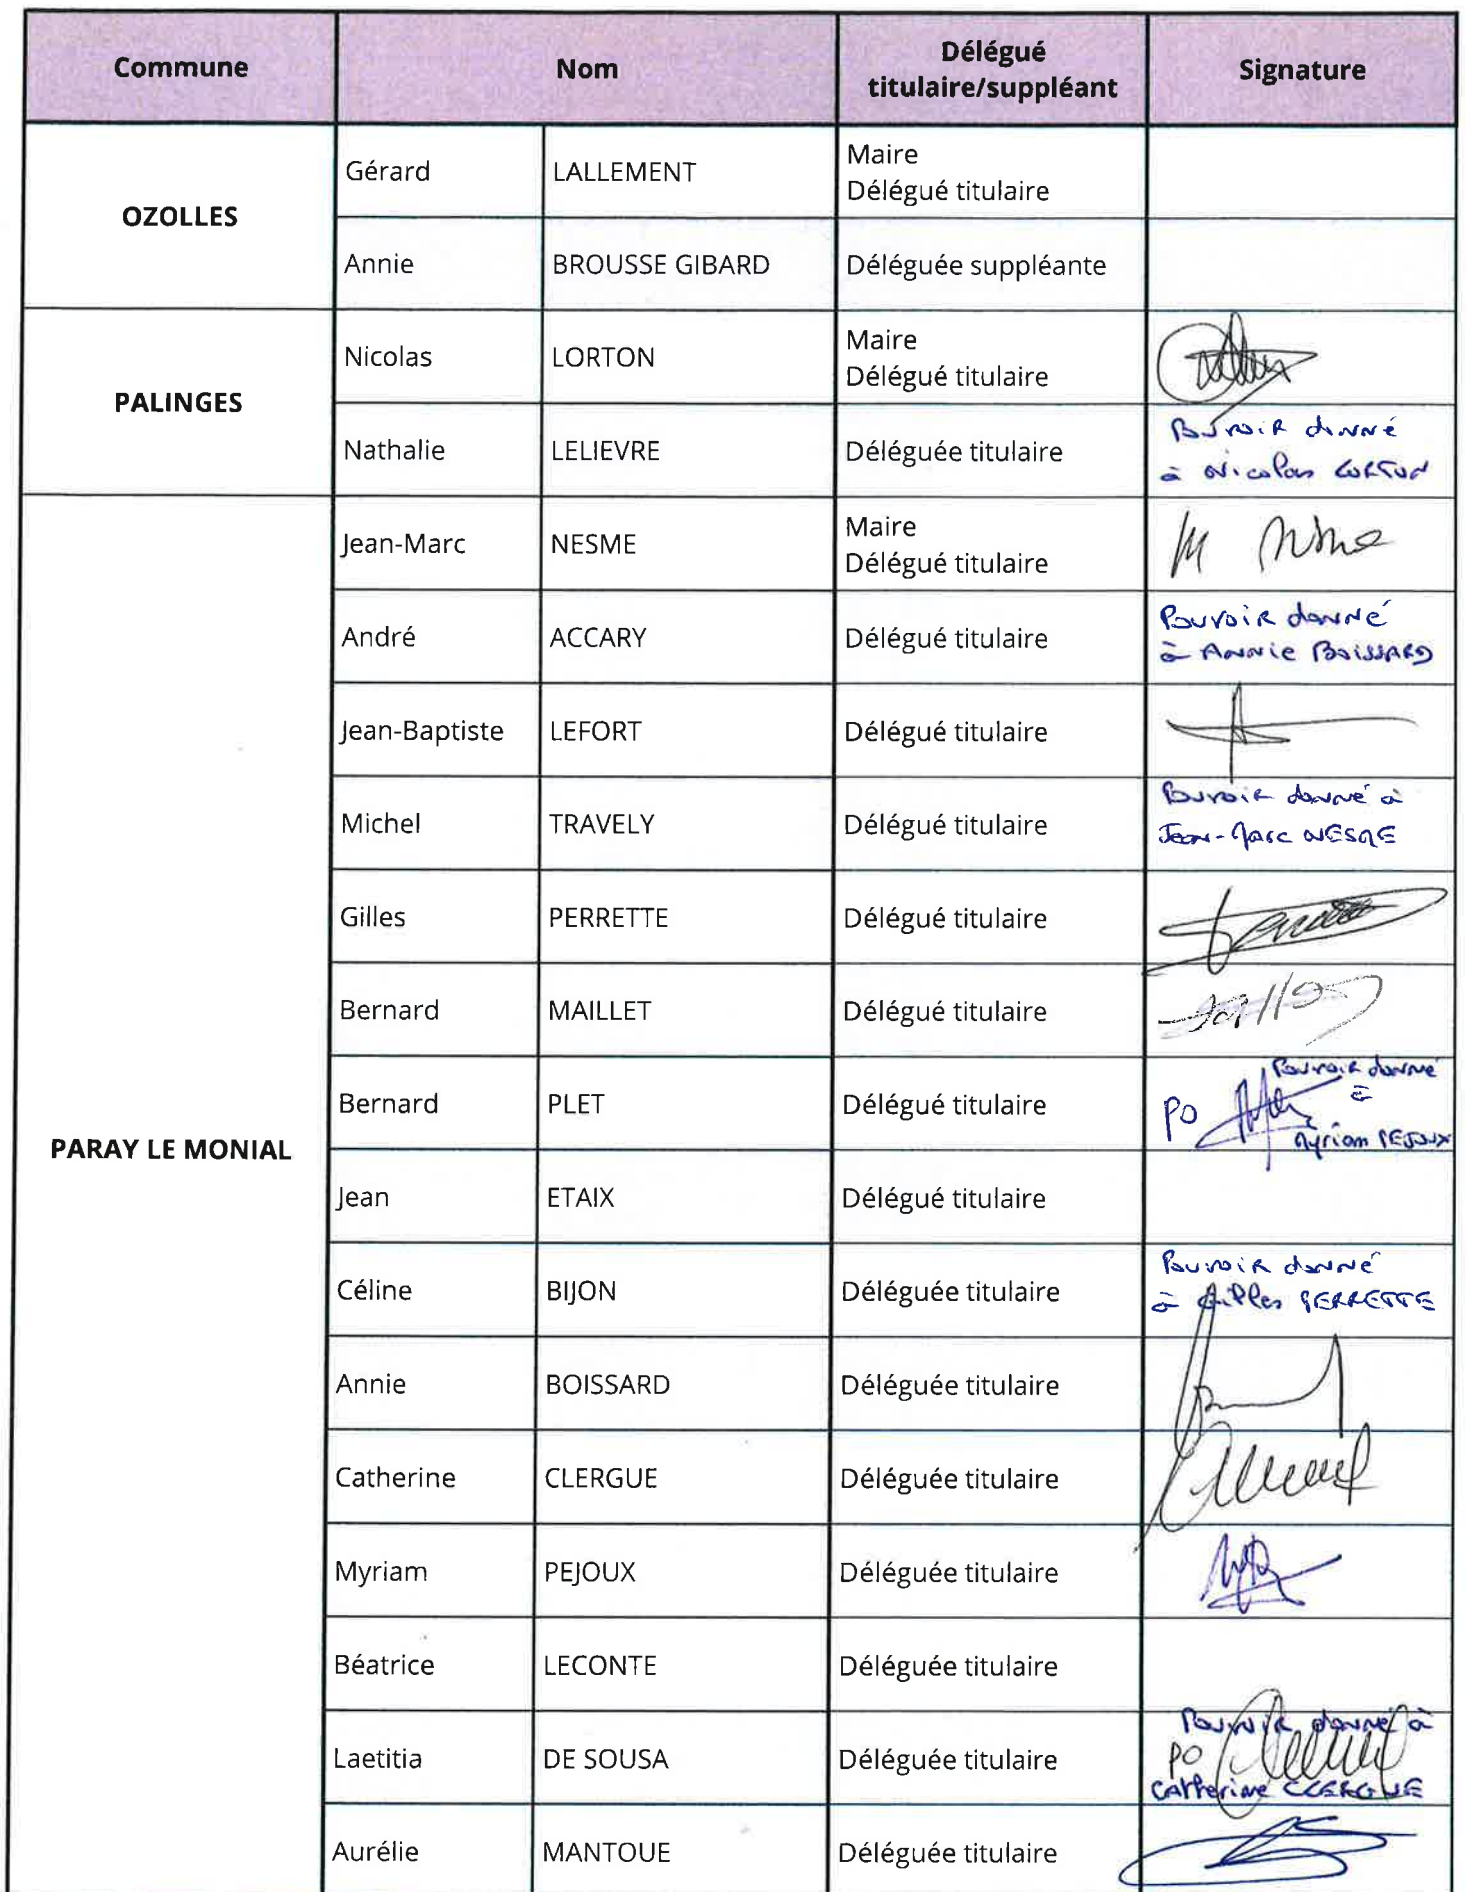 Commune Nom Délégué titulaire/suppléant Signature
OZOLLES
Gérard LALLEMENT Maire Délégué titulaire
Annie BROUSSE GIBARD Déléguée suppléante
PALINGES
Nicolas LORTON Maire Délégué titulaire
Nathalie LELIEVRE Déléguée titulaire Pouvoir donné à Nicolas LORTON
PARAY LE MONIAL
Jean-Marc NESME Maire Délégué titulaire
André ACCARY Délégué titulaire Pouvoir donné à Annie BOISSARD
Jean-Baptiste LEFORT Délégué titulaire
Michel TRAVELY Délégué titulaire Pouvoir donné à Jean-Marc NESME
Gilles PERRETTE Délégué titulaire
Bernard MAILLET Délégué titulaire
Bernard PLET Délégué titulaire PO Pouvoir donné à Myriam PEJOUX
Jean ETAIX Délégué titulaire
Céline BIJON Déléguée titulaire Pouvoir donné à Gilles PERRETTE
Annie BOISSARD Déléguée titulaire
Catherine CLERGUE Déléguée titulaire
Myriam PEJOUX Déléguée titulaire
Béatrice LECONTE Déléguée titulaire
Laetitia DE SOUSA Déléguée titulaire Pouvoir donné à PO Catherine CLERGUE
Aurélie MANTOUE Déléguée titulaire